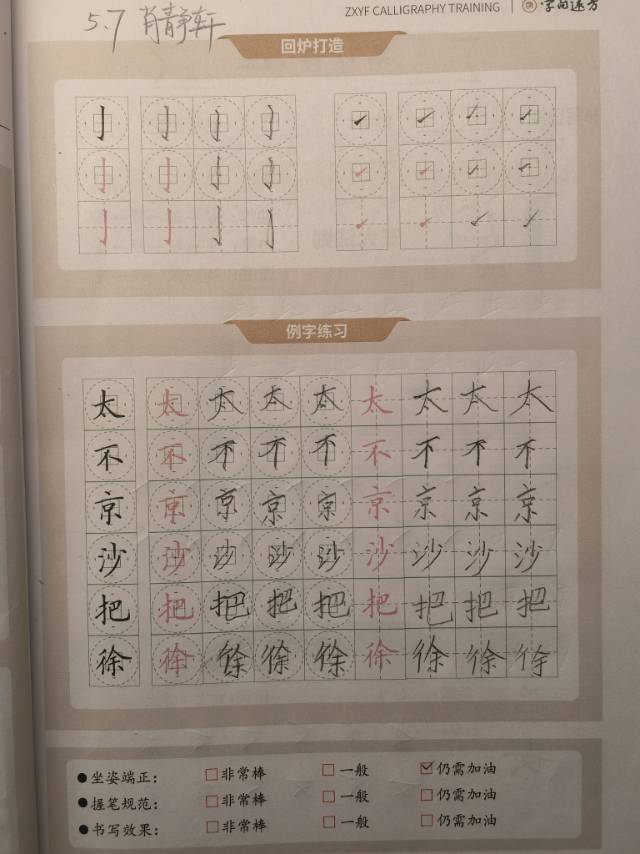 ZXYF CALLIGRAPHY TRAINING | 字问速方
5.7 肖静轩
回炉打造
亅 亅 亅 亅
亅 亅 亅 亅
亅 亅 亅 亅
例字练习
太 太 太 太 太 太 太 太 太
不 不 不 不 不 不 不 不 不
京 京 京 京 京 京 京 京 京
沙 沙 沙 沙 沙 沙 沙 沙 沙
把 把 把 把 把 把 把 把 把
徐 徐 徐 徐 徐 徐 徐 徐 徐
●坐姿端正： □非常棒 □一般 ☑仍需加油
●握笔规范： □非常棒 □一般 □仍需加油
●书写效果： □非常棒 □一般 □仍需加油